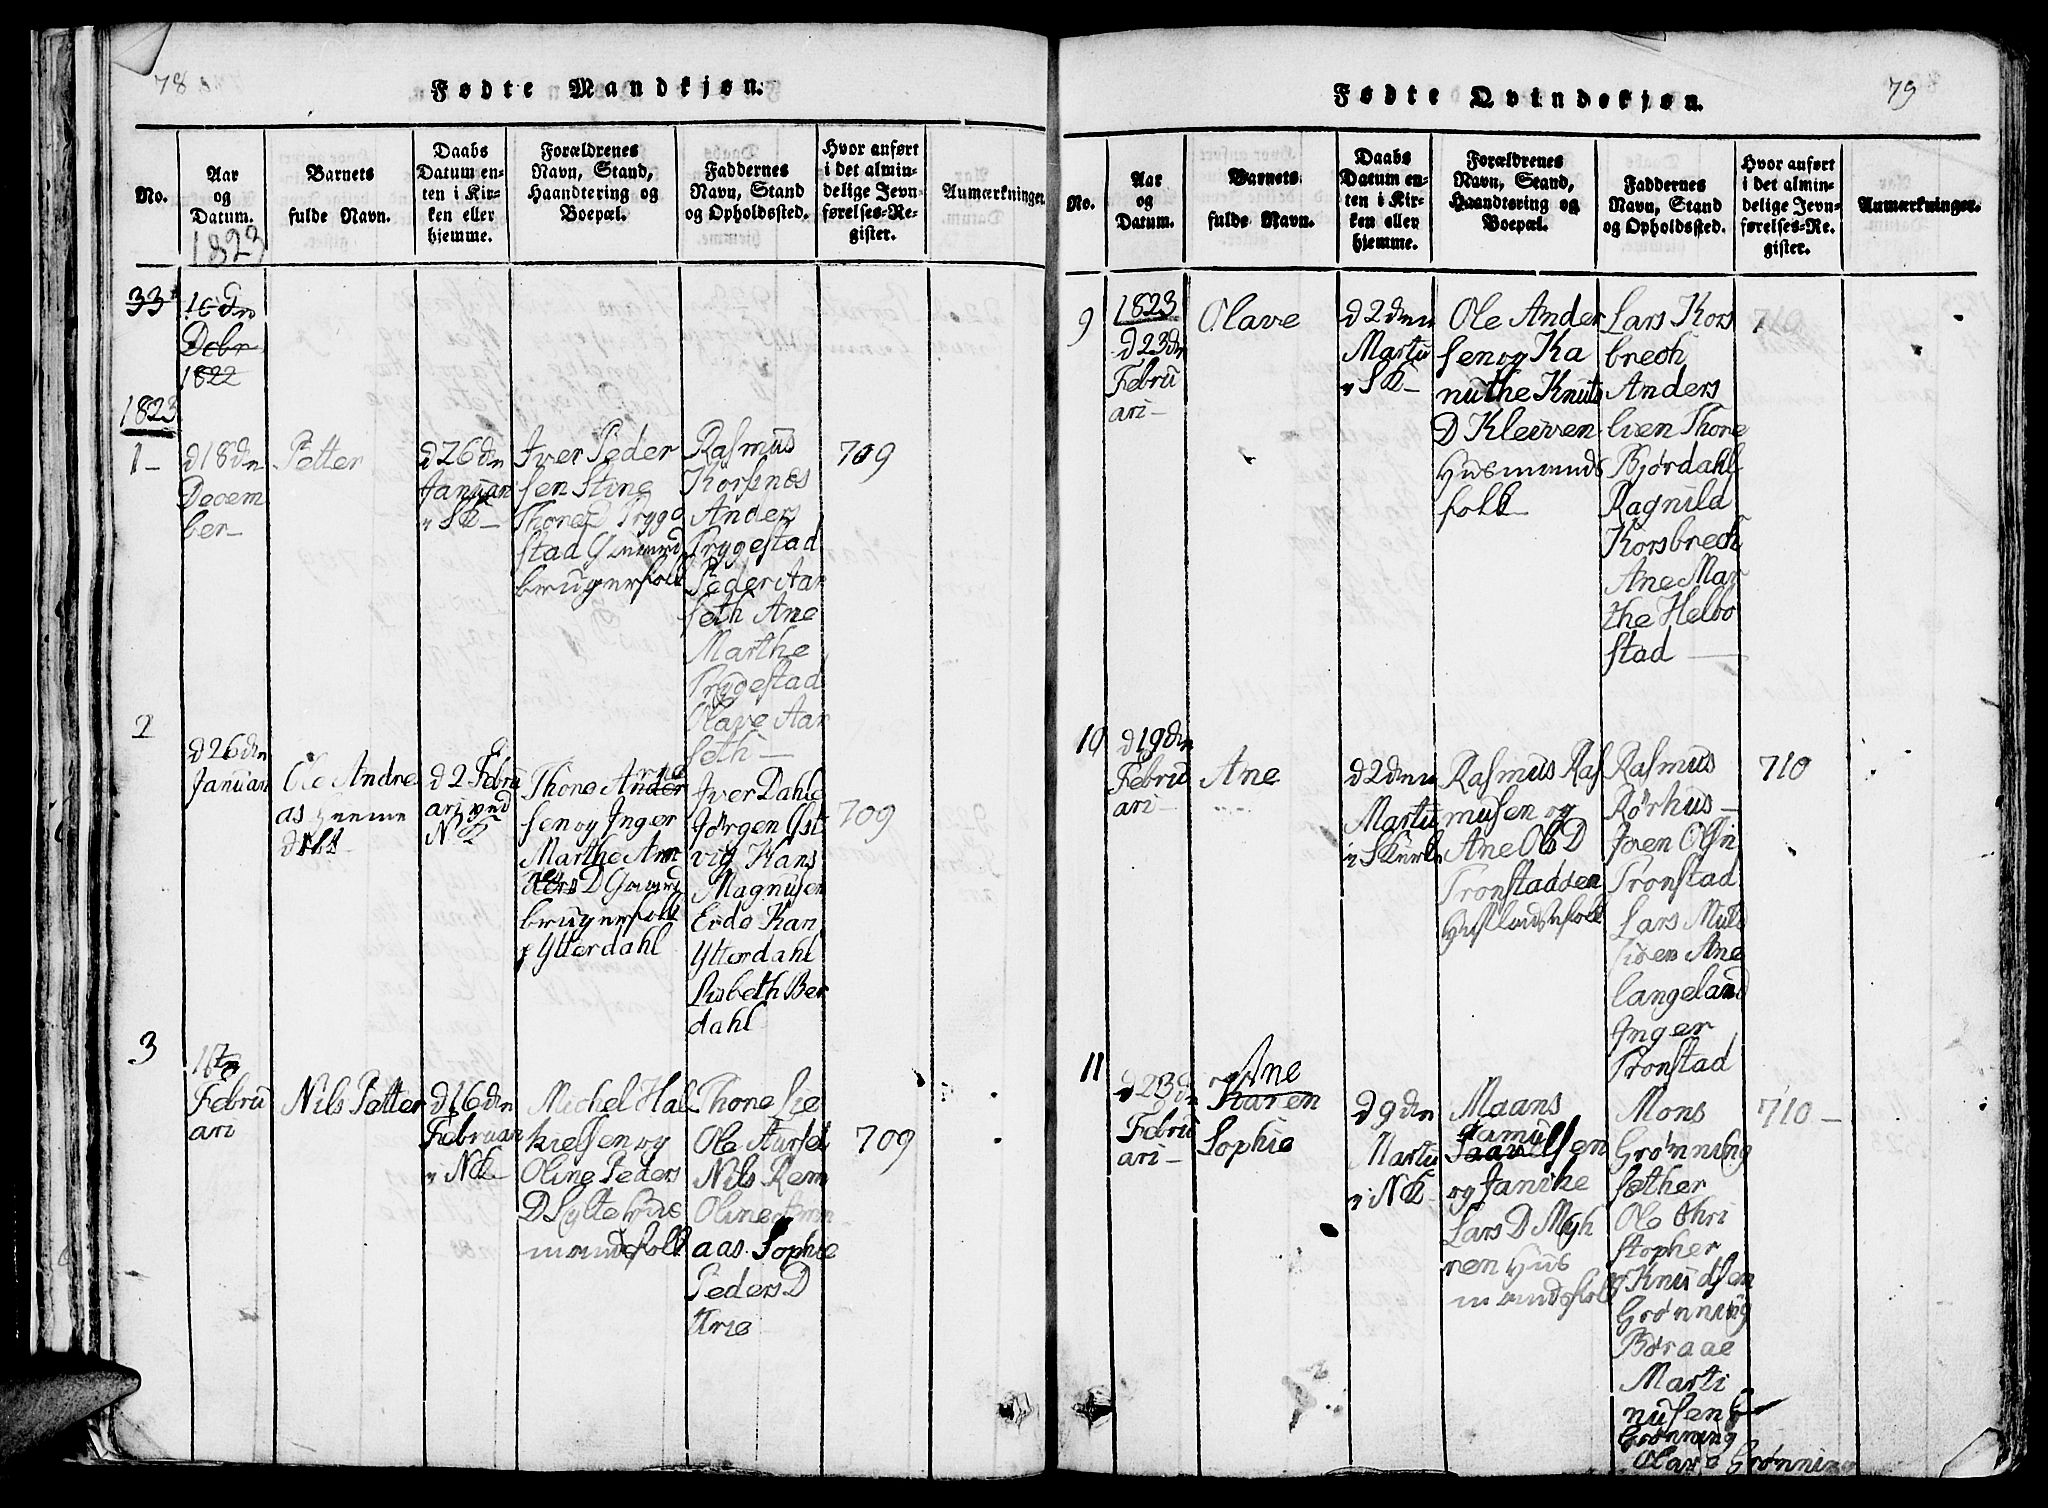 78
Fødte Mandkjøn.
No.
Aar
og
Datum.
1823
Barnets
fulde Navn.
Daabs
Datum en-
ten i Kir-
ken eller
hjemme.
Forældrenes
Navn, Stand,
Haandtering og
Boepæl.
Faddernes
Navn, Stand
og Opholdssted.
Hvor anført
i det almin-
delige Jevn-
førelses-Re-
gister.
Anmærkninger.
33
Dcbr
1822
1823
1-
d18dn
Decem
ber-
Petter
d26dn
Januari
SK-
Iver Peder
sen Stine
Thores D Trygge
stad Gaard
brugerfolk
Rasmus
Korsnes
Anders
Trygestad
Peder Aar
seth Ane
Marthe
Trygestad
Olave Aar
seth-
709
2
d26dn
Januari
Ole Andre
as
d2Febru
ari ved
NK
Thore
sen og Inger
Marthe
D Gaard
brugerfolk
Ytterdahl
Iver Dahle
Jørgen Yst
vig Hans
Magnusen
Erde Kan
Ytterdahl
Lisbeth Ber
dahl
709
3
Febru
ari
Nils Petter
d16dn
Februari
NK-
Michel Hal
kielsen og
Oline Peders
D Sylte Hus
mandsfolk
Thore Lie
Ole Aursel
Nils Rem
Oline
aas Sophie
Peders D
Urie
709
79
Fødte Qvindekjøn.
No.
Aar
og
Datum.
Barnets
fulde Navn.
Daabs
Datum en-
ten i Kir-
ken eller
hjemme.
Forældrenes
Navn, Stand,
Haandtering og
Boepæl.
Faddernes
Navn, Stand
og Opholdssted.
Hvor anført
i det almin-
delige Jevn-
førelses-Re-
gister.
Anmærkninger.
9
1823
d23dn
Febru
ari-
Olave
d2den
Marti
SK-
Ole Ander
sen og Ka
nuthe Knuts
D Kleiven
Husmands
folk
Lars Kors
brech
Anders
lien Thore
Bjørdahl
Ragnild
Korsbrech
Ane Mar
the Helbo
stad
710
10
d19dn
Febru
ari-
Ane
d2den
Marti
Rasmus Ras
musen og
Ane Ols D
Tronstadsen
Rasmus
Rørhus-
Iven Olsn
Tronstad
Lars
Ane
langeland
Inger
Tronstad
710
11
d23dn
Febru
ari-
Ane
Karen
Sophie
d9dn
Marti
NK
Maans
Samuelsen
og Janike
Lars D Myh
ren Hus
mandsfolk
Mons
Grønning
sæther
Ole Chri
stopher
Knudsen
Grønning
Beraae
Marti
nusen
Grønning
Olave Grønning
710-